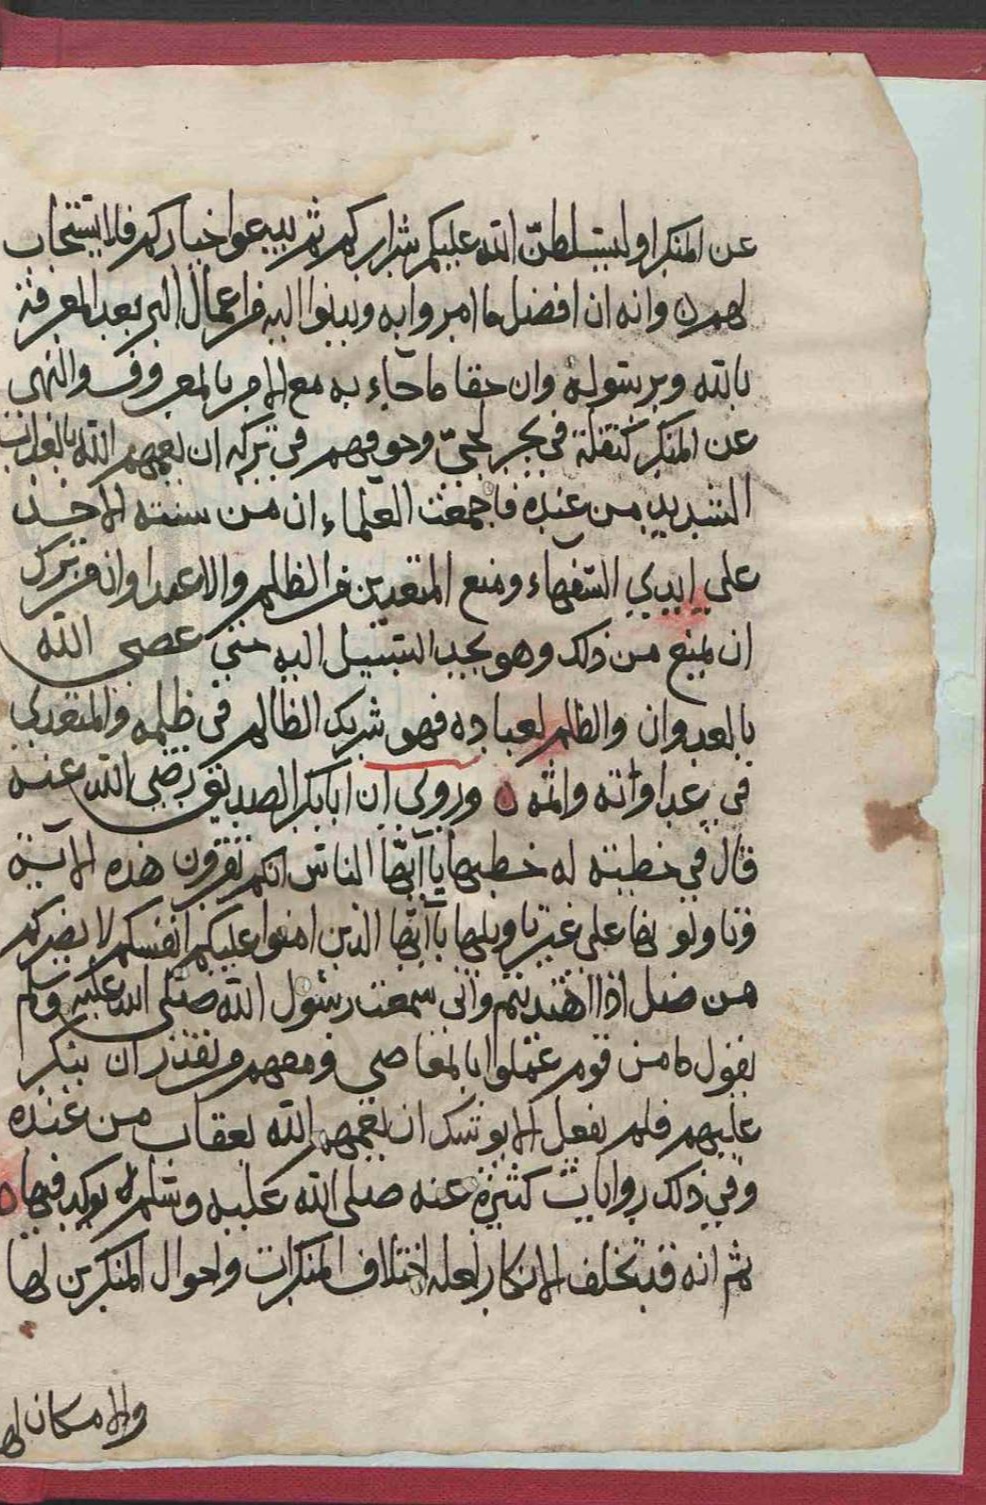 عن المنكر او ليتسلطنّ الله عليكم شراركم ثم يدعوا خياركم فلا يستجاب
لهم ه وانه ان افضل ما امروا به وندبوا اليه من اعمال البر بعد المعرفة
بالله وبرسوله وان حقا ما جآء به مع الامر بالمعروف والنهي
عن المنكر كتفلة في بحر لجيّ وخوفهم في تركه ان يعمهم الله بالعذاب
الشديد من عنده فاجمعت العلماء ان من سنته الاخذ
على ايدي السفهاء ومنع المتعدين من الظالم والاعتدا وان من ترك
ان يمنع من ذلك وهو يجد السبيل اليه حتى عصي الله
بالعدوان والظلم لعباده فهو شريك الظالم في ظلمه والمتعدي
في عداوانه واثمه ه وروي ان ابا بكر الصديق رضي الله عنه
قال في خطبته له خطبها يا آيها الناس انكم تقرون هذه الآية
وتاولونها على غير تاويلها يا آيها الذين امنوا عليكم انفسكم لا يضركم
من ضل اذا اهتديتم واني سمعت رسول الله صلى الله عليه وسلم
يقول ما من قوم عملوا بالمعاصي ومعهم من يقدر ان ينكر
عليهم فلم يفعل الا يوشك ان يعمهم الله بعقاب من عنده
وفي ذلك روايات كثيرة عنه صلى الله عليه وسلم يوكد فيها ه
ثم انه قد تختلف الانكار لعله اختلاف المنكرات واحوال المنكرين لها
والامكان لها